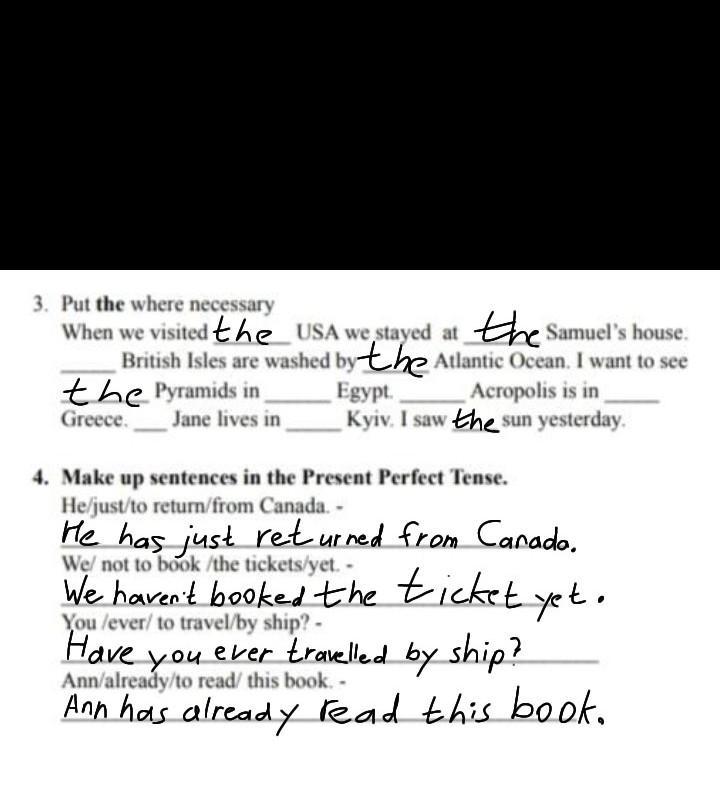 3. Put the where necessary
When we visited the USA we stayed at the Samuel's house.
_____ British Isles are washed by the Atlantic Ocean. I want to see
the Pyramids in ______ Egypt. ______ Acropolis is in _____
Greece. ___ Jane lives in _____ Kyiv. I saw the sun yesterday.
4. Make up sentences in the Present Perfect Tense.
He/just/to return/from Canada. -
He has just returned from Canada.
We/ not to book /the tickets/yet. -
We haven't booked the ticket yet.
You /ever/ to travel/by ship? -
Have you ever travelled by ship?
Ann/already/to read/ this book. -
Ann has already read this book.